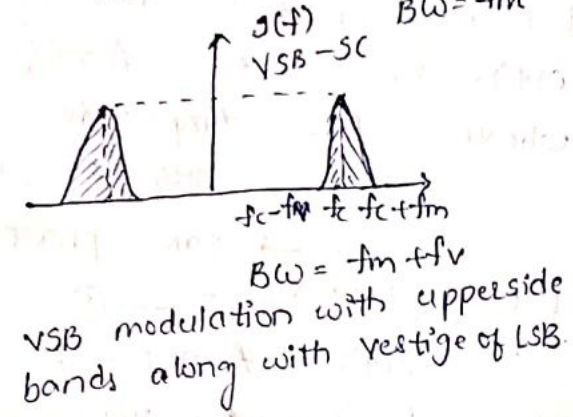 BW = fm
g(f)
VSB-SC
fc-fv fc fc+fm
BW = fm+fv
VSB modulation with upperside
bands along with vestige of LSB.